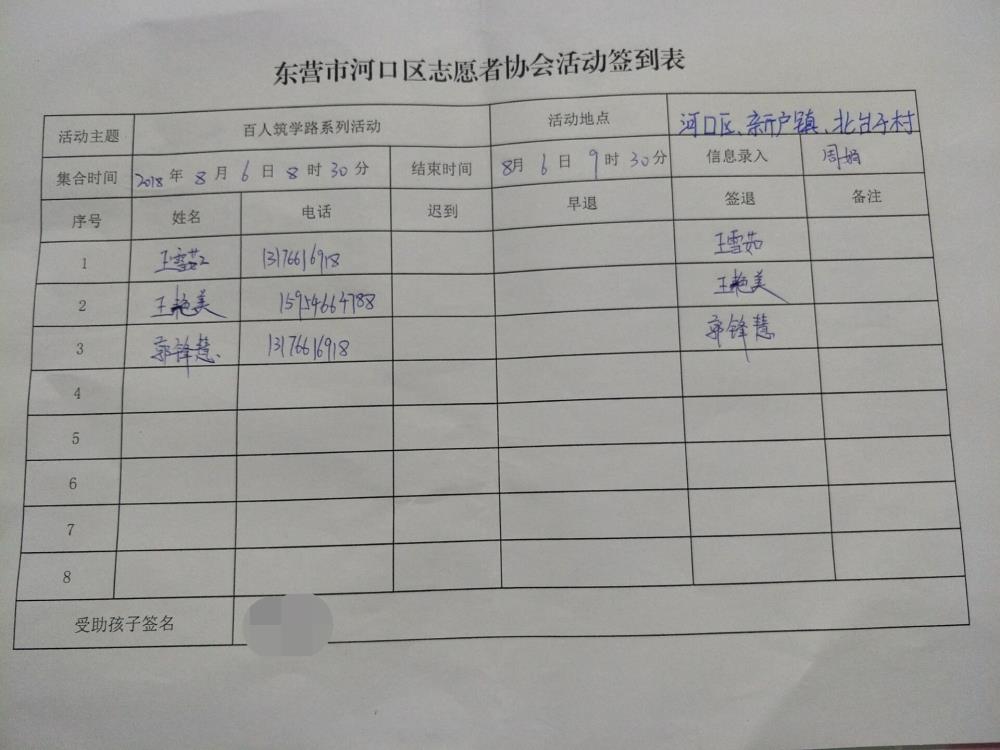 东营市河口区志愿者协会活动签到表
活动主题 百人筑学路系列活动 活动地点 河口区、新户镇、北台子村
集合时间 2018年8月6日8时30分 结束时间 8月6日9时30分 信息录入 周娟
序号 姓名 电话 迟到 早退 签退 备注
1 王雪茹 13176616918 王雪茹
2 王艳美 15954664788 王艳美
3 郭锋慧 13176616918 郭锋慧
4
5
6
7
8
受助孩子签名